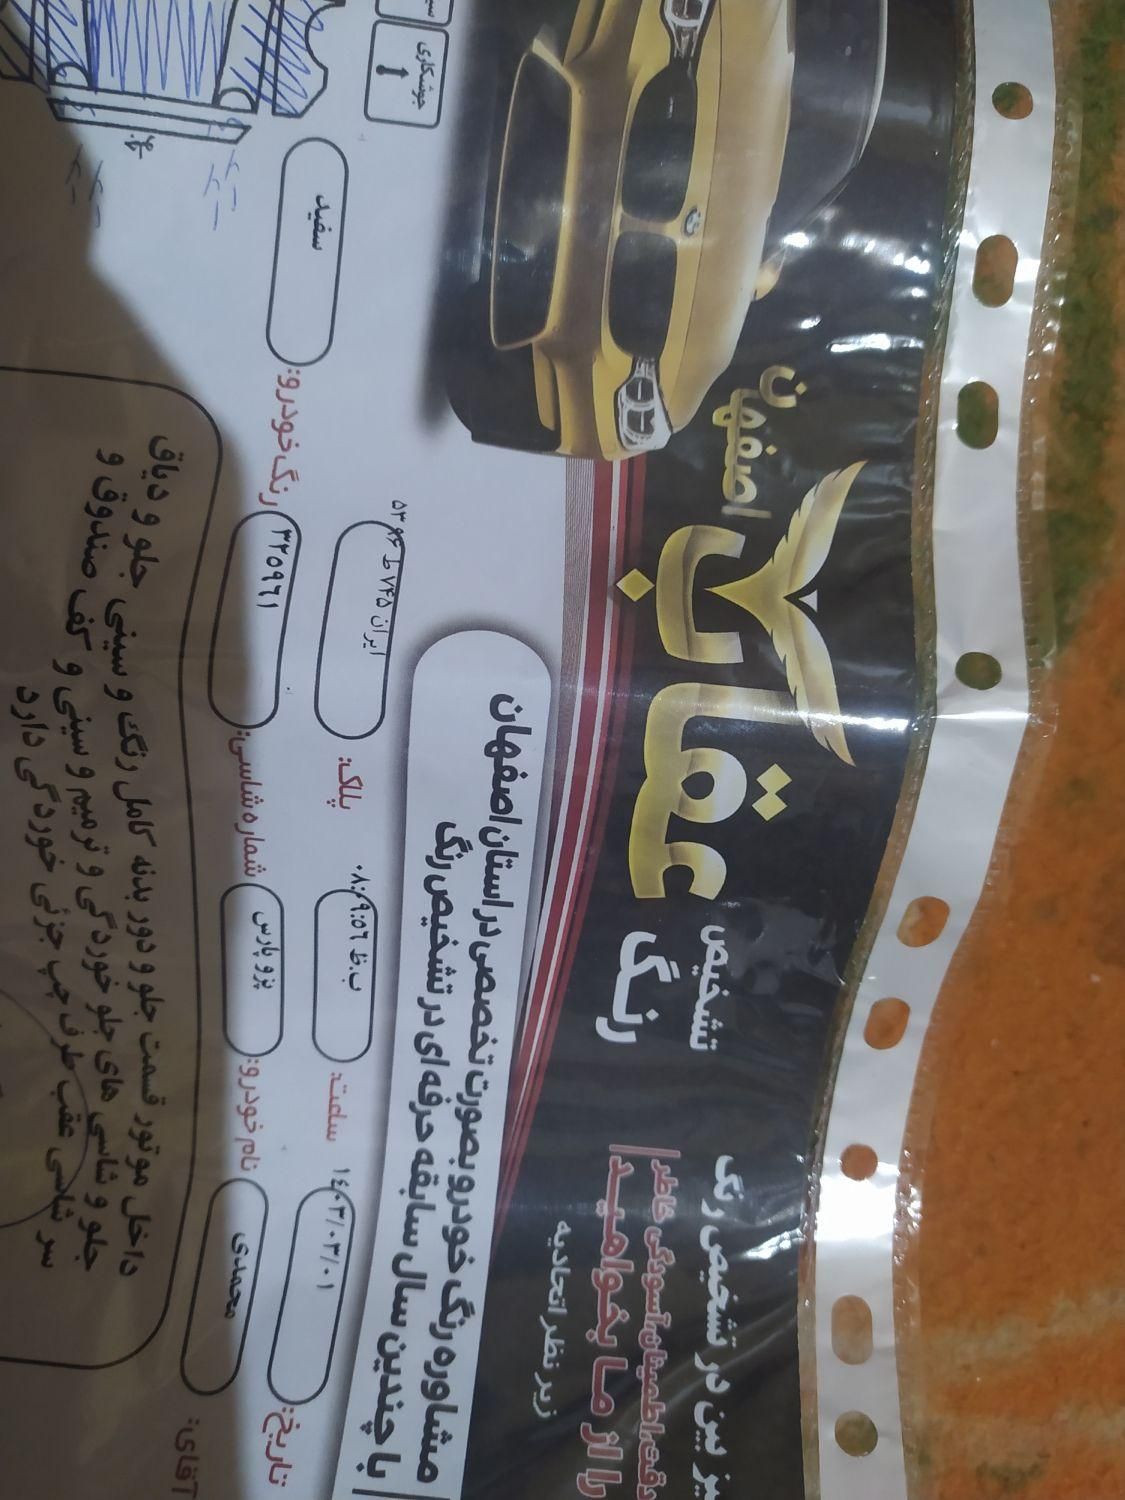 اصفهان
عقاب
تشخیص
رنگ
تیز بین در تشخیص رنگ
دقت، اطمینان، آسودگی خاطر
را از ما بخواهید
زیر نظر اتحادیه
مشاوره رنگ خودرو بصورت تخصصی در استان اصفهان
با چندین سال سابقه حرفه ای در تشخیص رنگ
جوشکاری
تاریخ: ۱۴۰۳/۰۳/۰۱
ساعت: ۰۸:۰۹:۵۶ ب.ظ
پلاک:
آقای: محمدی
نام خودرو: پژو پارس
شماره شاسی: ۳۲۵۹۶۱
رنگ خودرو: سفید
داخل موتور قسمت جلو و دور بدنه کامل رنگ و سینی جلو و دیاق
جلو و شاسی های جلو خوردگی و ترمیم و سینی و کف صندوق و
سر شاسی عقب طرف چپ جزئی خوردگی دارد